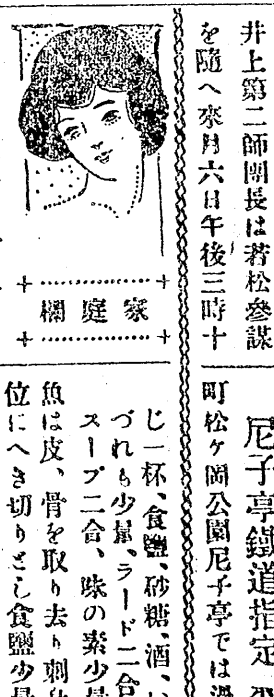 井上第二師團長は若松參謀
を隨へ來月六日午後三時十
尼子亭鐵道指定
町松ケ岡公園尼子亭では
家庭欄
じ一杯、食鹽、砂糖、酒、い
づれも少量、ラード二合
スープ二合、味の素少量
魚は皮、骨を取り去り刺身
位にへき切りとし食鹽少量